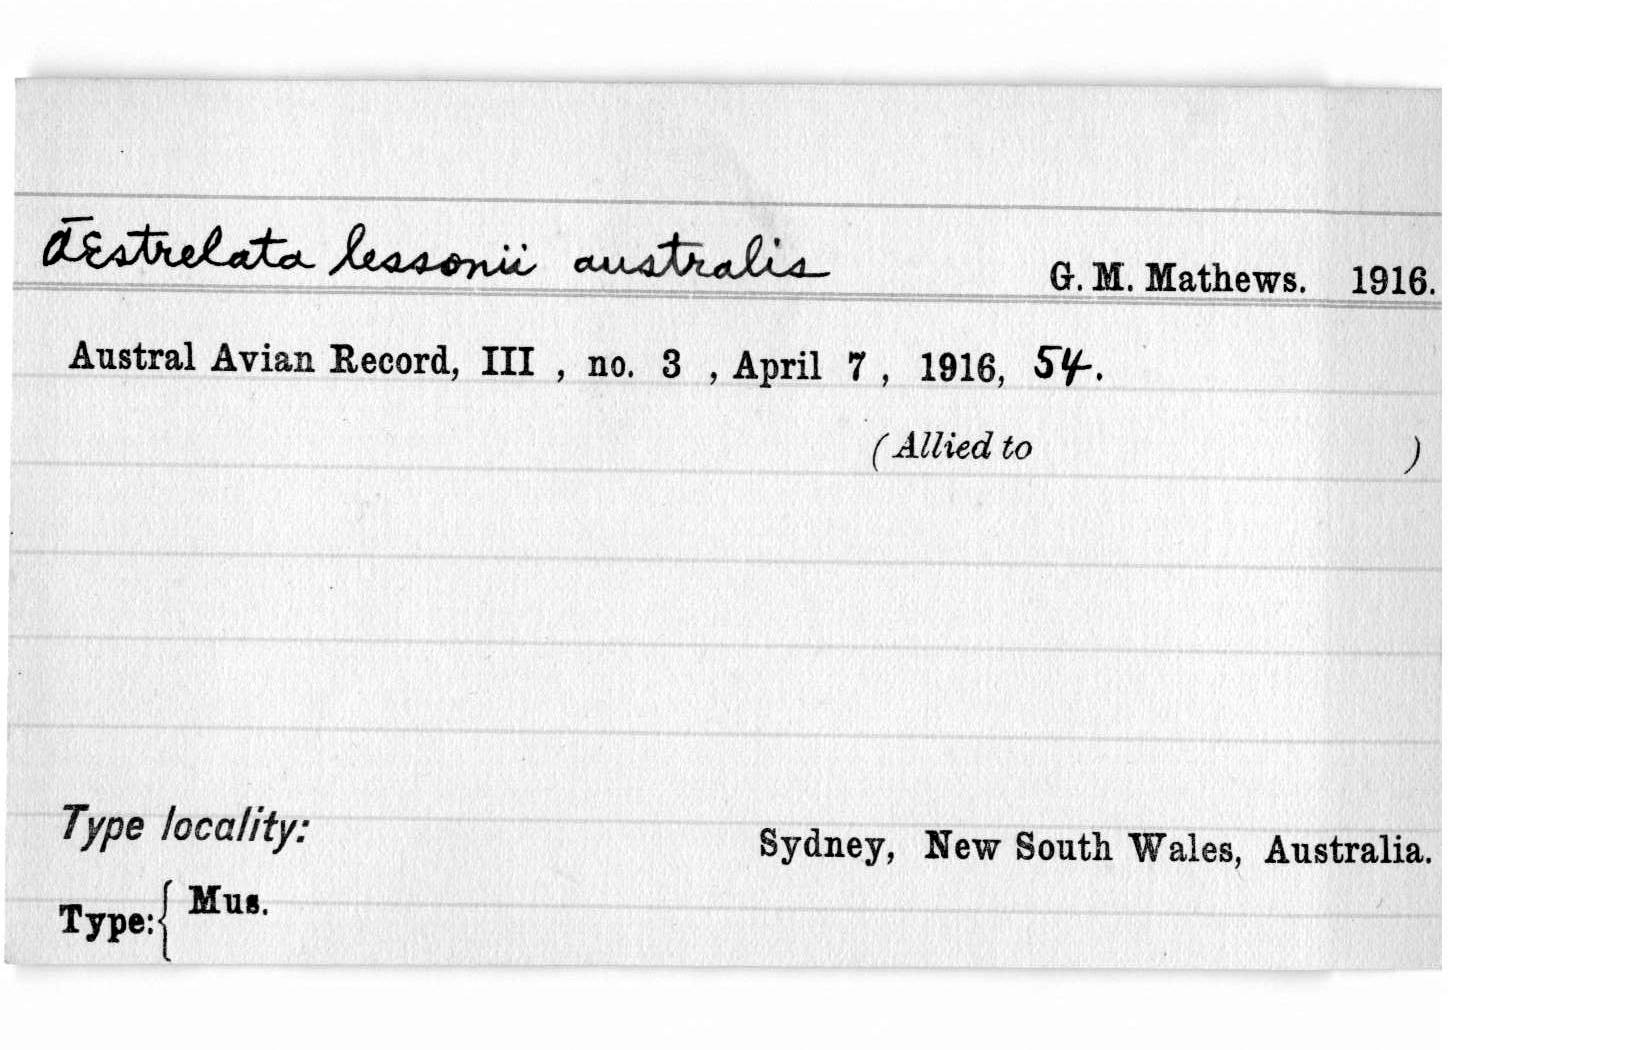 Æstrelata lessonii australis G. M. Mathews. 1916.
Austral Avian Record, III , no. 3 , April 7 , 1916, 54.
(Allied to )
Type locality: Sydney, New South Wales, Australia.
Type:{ Mus.